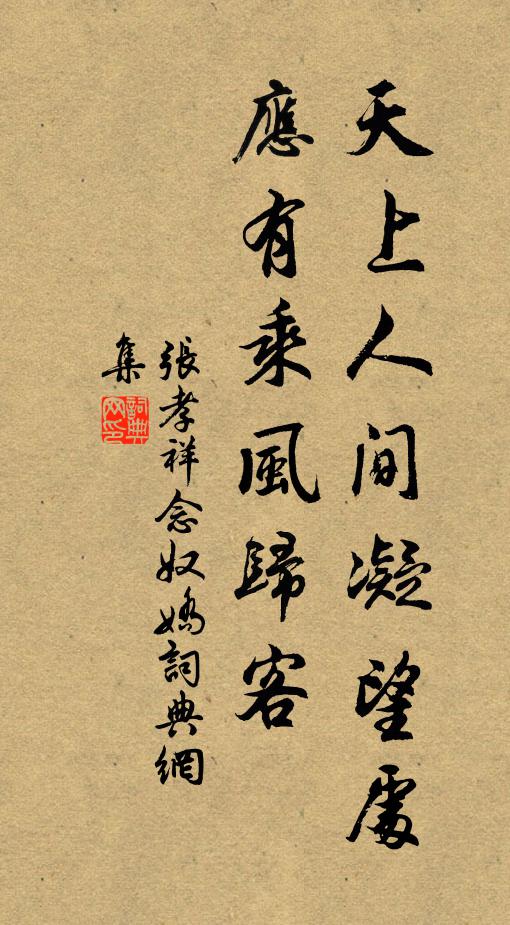 天上人間凝望處
應有乘風歸客
張孝祥念奴嬌詞典網
集
詞典网印